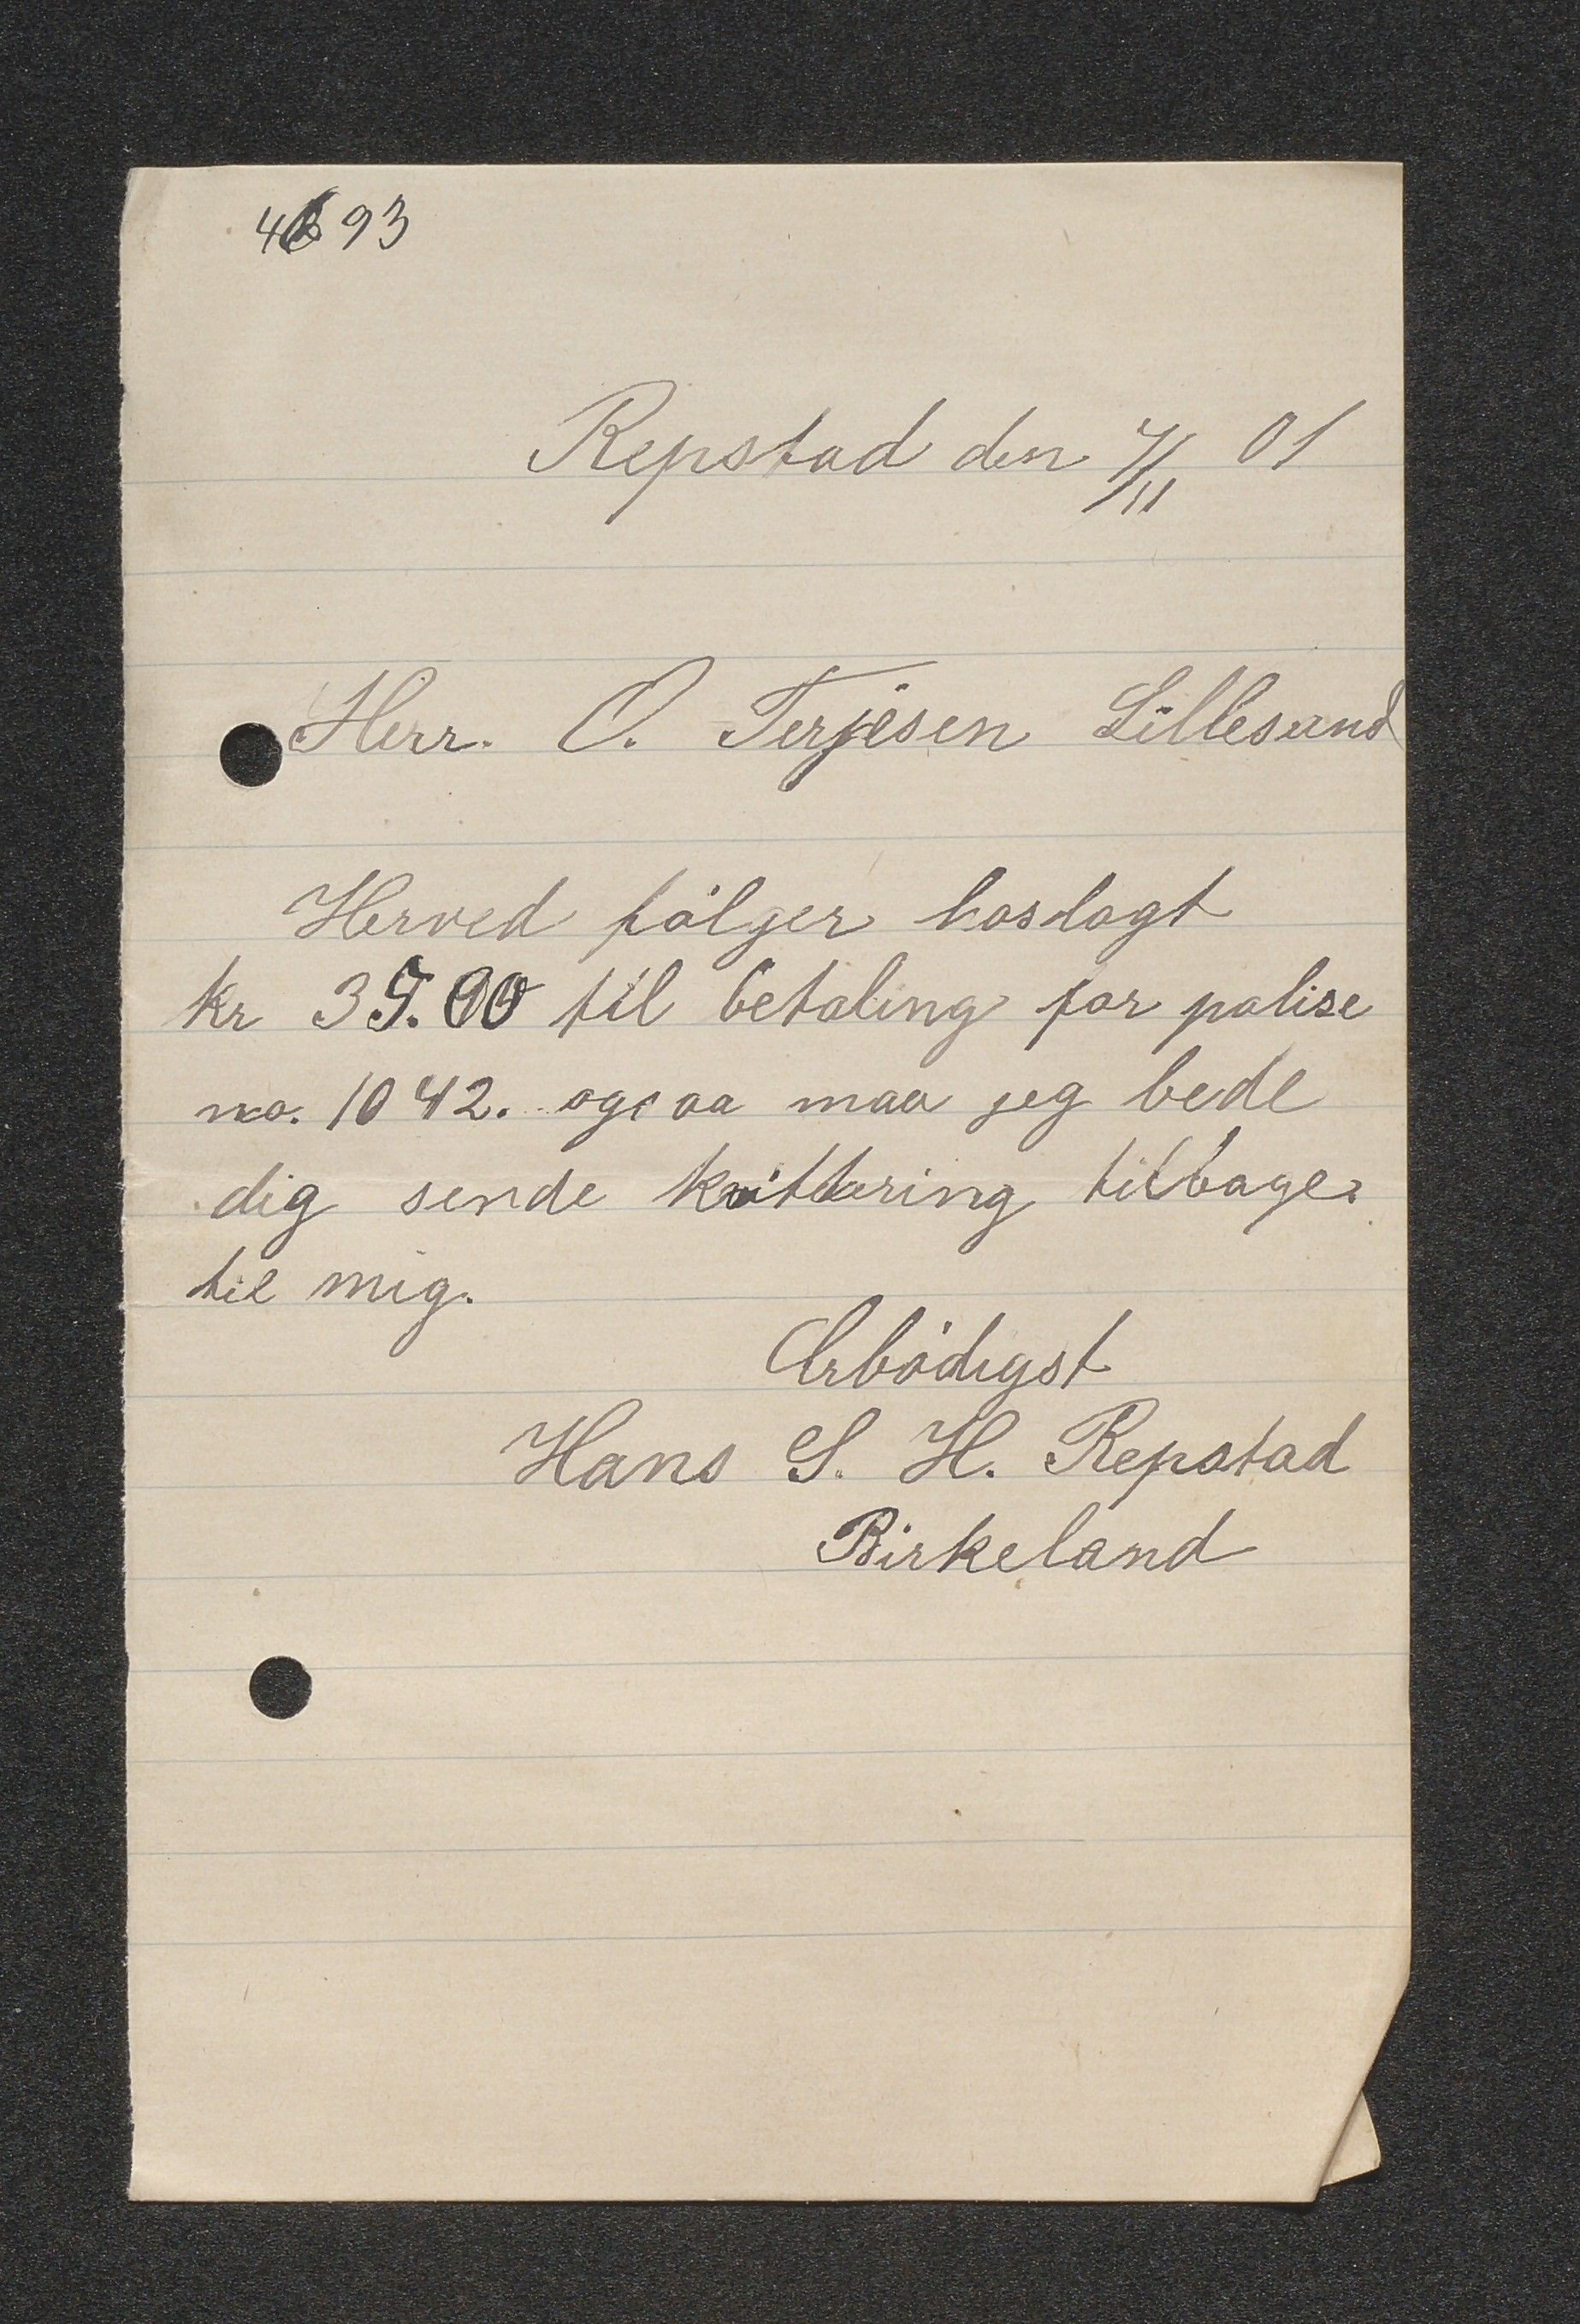 4693
Repstad den 4/11 01
Herr. O. Terjesen Lillesand
Herved fölger hoslagt
kr 35.00 til betaling for polise
no. 1042. ogsaa maa jeg bede
dig sende kvittering tilbage.
til mig.
Erbödigst
Hans S. H. Repstad
Birkeland